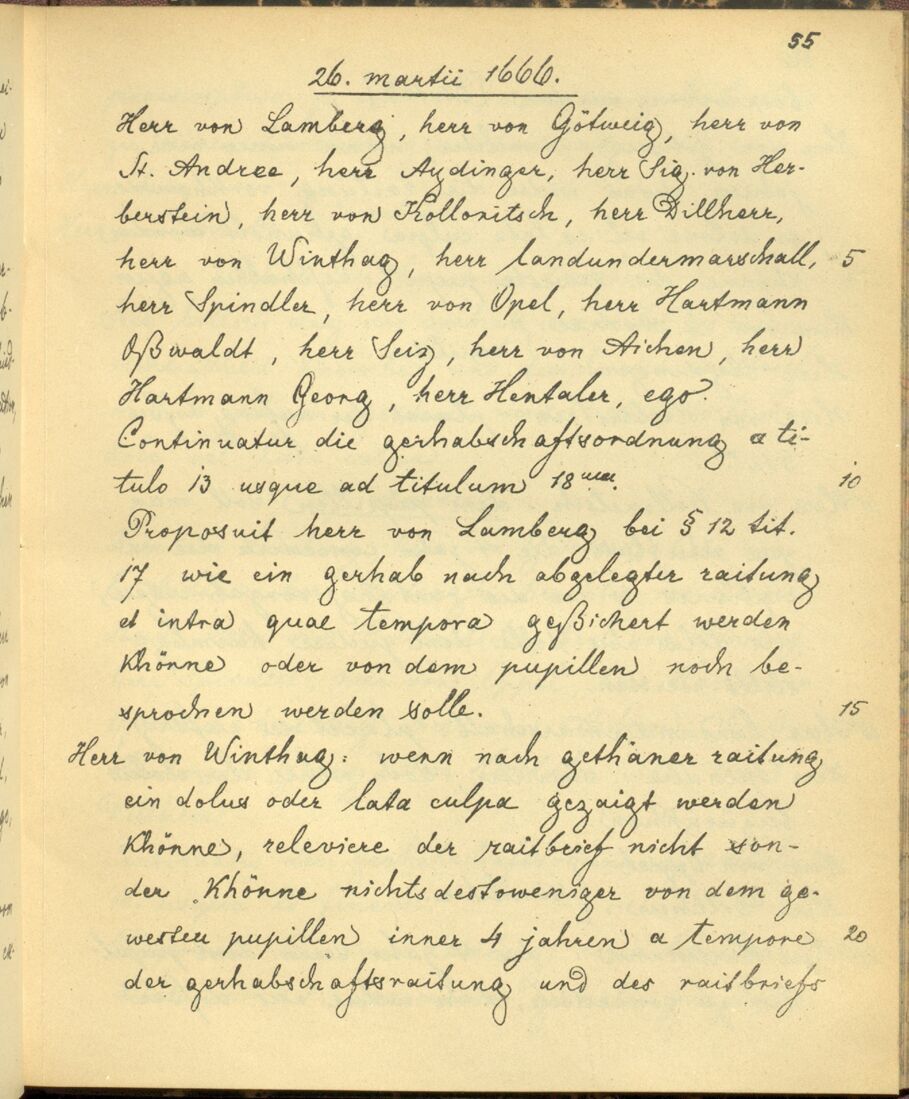 55
26. martii 1666.
Herr von Lamberg, herr von Götweig, herr von
St. Andree, herr Aydinger, herr Sig. von Her-
berstein, herr von Kollonitsch, herr Dillherr,
herr von Winthag, herr landundermarschall, 5
herr Spindler, herr von Opel, herr Hartmann
Oßwaldt, herr Seiz, herr von Aichen, herr
Hartmann Georg, herr Hentaler, ego.
Continuatur die gerhabschaftsordnung a ti-
tulo 13 usque ad titulum 18um. 10
Proposuit herr von Lamberg bei § 12 tit.
17 wie ein gerhab nach abgelegter raitung
et intra quae tempora geßichert werden
khönne oder von dem pupillen noch be-
sprochen werden solle. 15
Herr von Winthag: wenn nach gethaner raitung
ein dolus oder lata culpa gezaigt werden
khönne, releviere der raitbrief nicht son-
der khönne nichtsdestoweniger von dem ge-
westen pupillen inner 4 jahren a tempore 20
der gerhabschaftsraitung und des raitbriefs